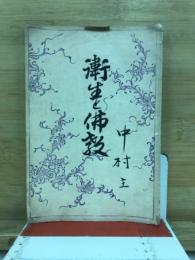 衛生と佛教
中村主